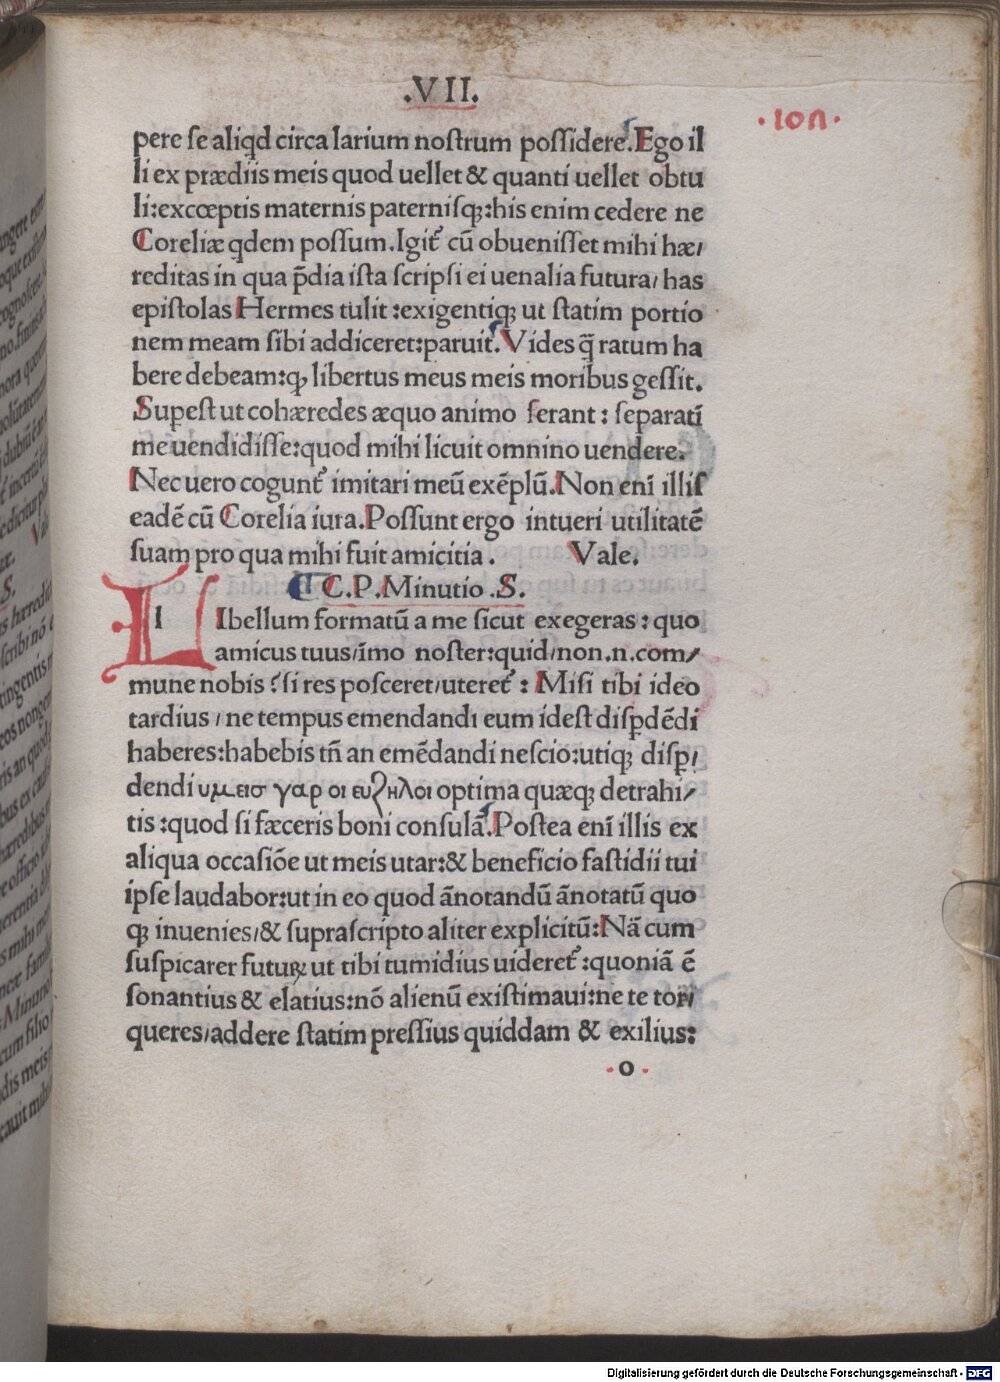 .VII.
·ıon·
pere se aliqd circa larium nostrum possidere. Ego il
li ex prædiis meis quod uellet & quanti uellet obtu
li: excœptis maternis paternisq; : his enim cedere ne
Coreliæ qdem possum. Igit̃ cũ obuenisset mihi hæ/
reditas in qua p̃dia ista scripsi ei uenalia futura/ has
epistolas Hermes tulit : exigentiq; ut statim portio
nem meam sibi addiceret: paruit. Vides q̃ ratum ha
bere debeam: q, libertus meus meis moribus gessit.
Supest ut cohæredes æquo animo ferant : separatĩ
me uendidisse: quod mihi licuit omnino uendere.
Nec uero cogunt̃ imitari meũ exẽplũ. Non enĩ illis
eadẽ cũ Corelia iura. Possunt ergo intueri utilitatẽ
suam pro qua mihi fuit amicitia . Vale.
C.P. Minutio .S.
L Ibellum formatũ a me sicut exegeras : quo
amicus tuus/ ĩmo noster: quid/ non .n. com/
mune nobis ? si res posceret/ uteret̃ : Misi tibi ideo
tardius / ne tempus emendandi eum idest dispdẽdi
haberes: habebis tñ an emẽdandi nescio: utiq; disp/
dendi υμεισ γαρ οι ευζηλοι optima quæq; detrahi/
tis : quod si fæceris boni consulã. Postea enĩ illis ex
aliqua occasiõe ut meis utar: & beneficio fastidii tui
ipse laudabor: ut in eo quod ãnotandũ ãnotatũ quo
q; inuenies/ & suprascripto aliter explicitũ: Nã cum
suspicarer futuꝝ ut tibi tumidius uideret̃ : quoniã ẽ
sonantius & elatius: nõ alienũ existimaui: ne te tor/
queres/ addere statim pressius quiddam & exilius:
· o ·
Digitalisierung gefördert durch die Deutsche Forschungsgemeinschaft - DFG